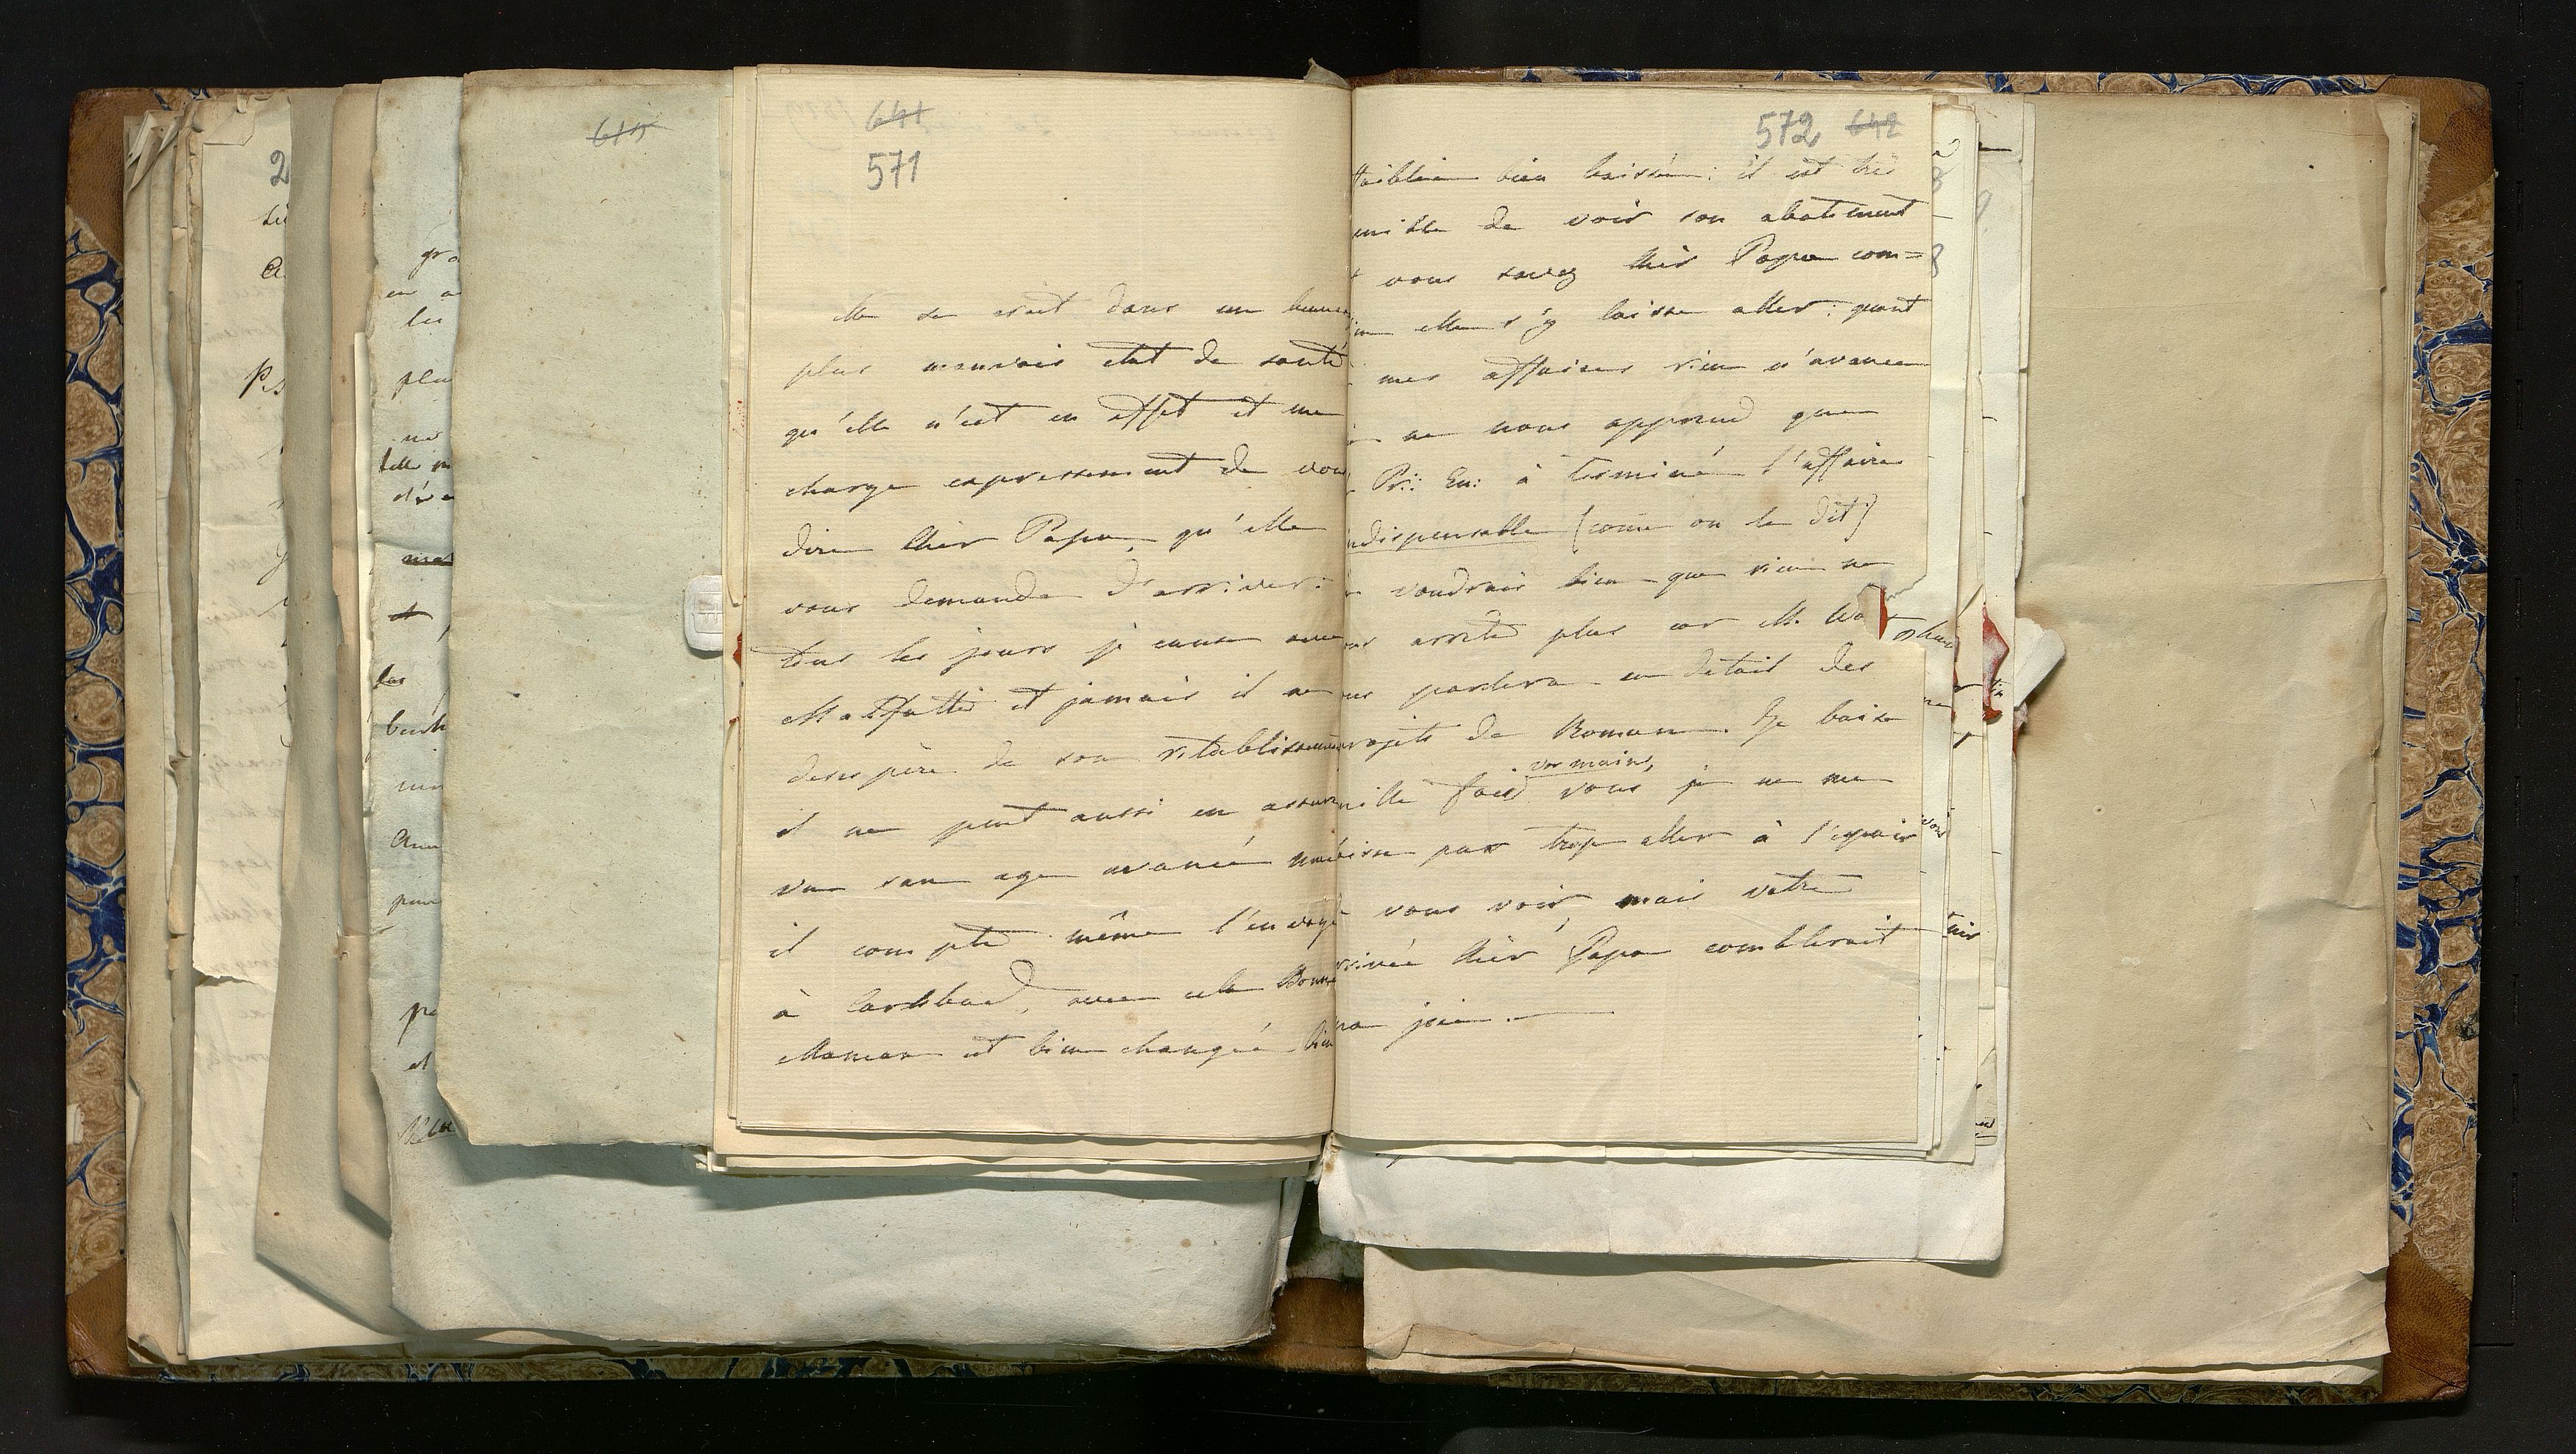 641
571
elle se croit dans un beaucoup
plus mauvais etat de santé
qu'elle n'est en effet et me
charge expressement de vous
dire Chèr Papa, qu'elle
vous demande d'arriver:
tous les jours je cause avec
Malfatti et jamais il ne
desespère de son retablissement
il ne peut aussi en assurer
vue son age avancé
il compte même l'envoyé
à Carlsbad, avec cela Bonne
Maman est bien changée bien
572 642
ffaiblie bien baissée: il est trè
enible de voir son abatement
t vous savez Chèr Papa com=
ien elle s'y laisse aller: quant
mes affaires rien n'avance
ne nous apprend que
Pr: Eu: à terminé l'affaire
ndispensable (come on le dit)
voudrais bien que rien ne
ous arrete plus car M. Wo
ous parlera en detail des
rojets de Roman. Je baise
mille fois vos mains, vous je ne me
aisse pas trop aller à l'espoir
vous voir, mais votre
rrivée Chèr Papa comblerait
ma joie.
615
2
gra
les
plu
telle
et
las
Ps